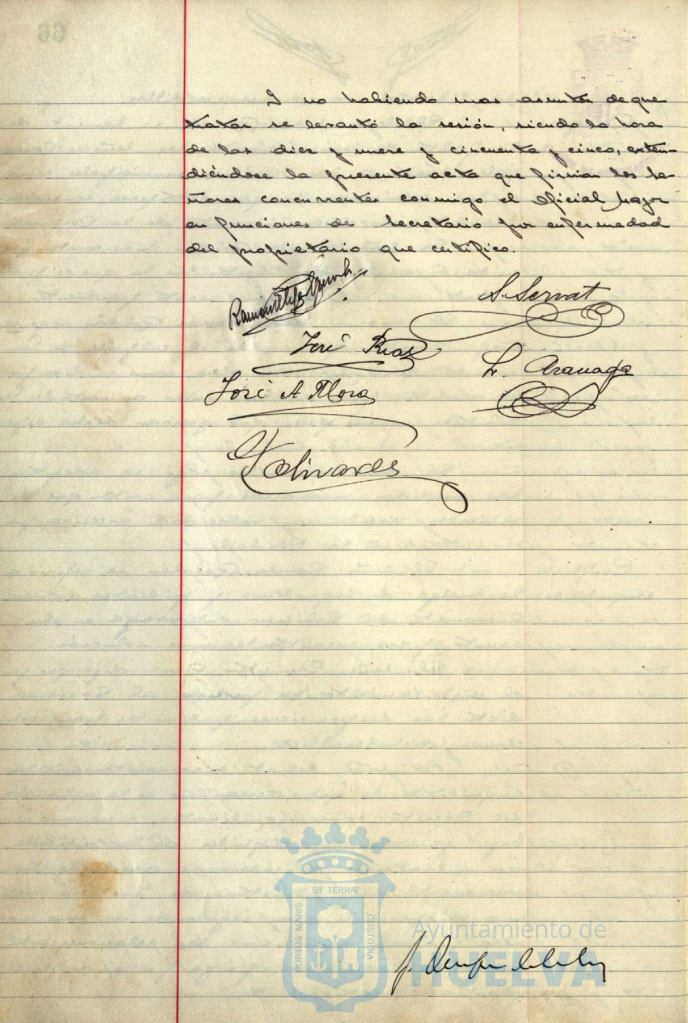 Y no habiendo mas asuntos de que
tratar se levantó la sesión, siendo la hora
de las diez y nueve y cincuenta y cinco, exten-
diéndose la presente acta que firman los se-
ñores concurrentes conmigo el Oficial Mayor
en funciones de Secretario por enfermedad
del propietario que certifico.
S. Servat
José
José A Mora
Olivares
ET TERRÆ
PORTUS MARIS
CUSTODIA
Ayuntamiento de
HUELVA